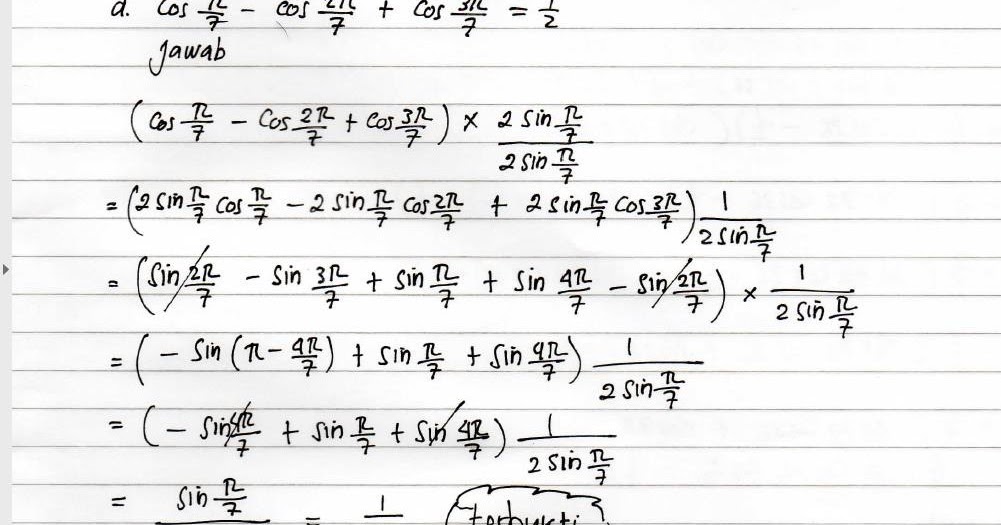 d. cos π/7 - cos 2π/7 + cos 3π/7 = 1/2
Jawab
(cos π/7 - cos 2π/7 + cos 3π/7) × (2 sin π/7)/(2 sin π/7)
= (2 sin π/7 cos π/7 - 2 sin π/7 cos 2π/7 + 2 sin π/7 cos 3π/7) 1/(2 sin π/7)
= (sin 2π/7 - sin 3π/7 + sin π/7 + sin 4π/7 - sin 2π/7) × 1/(2 sin π/7)
= (- sin (π - 4π/7) + sin π/7 + sin 4π/7) 1/(2 sin π/7)
= (- sin 4π/7 + sin π/7 + sin 4π/7) 1/(2 sin π/7)
= sin π/7 = 1 Terbukti